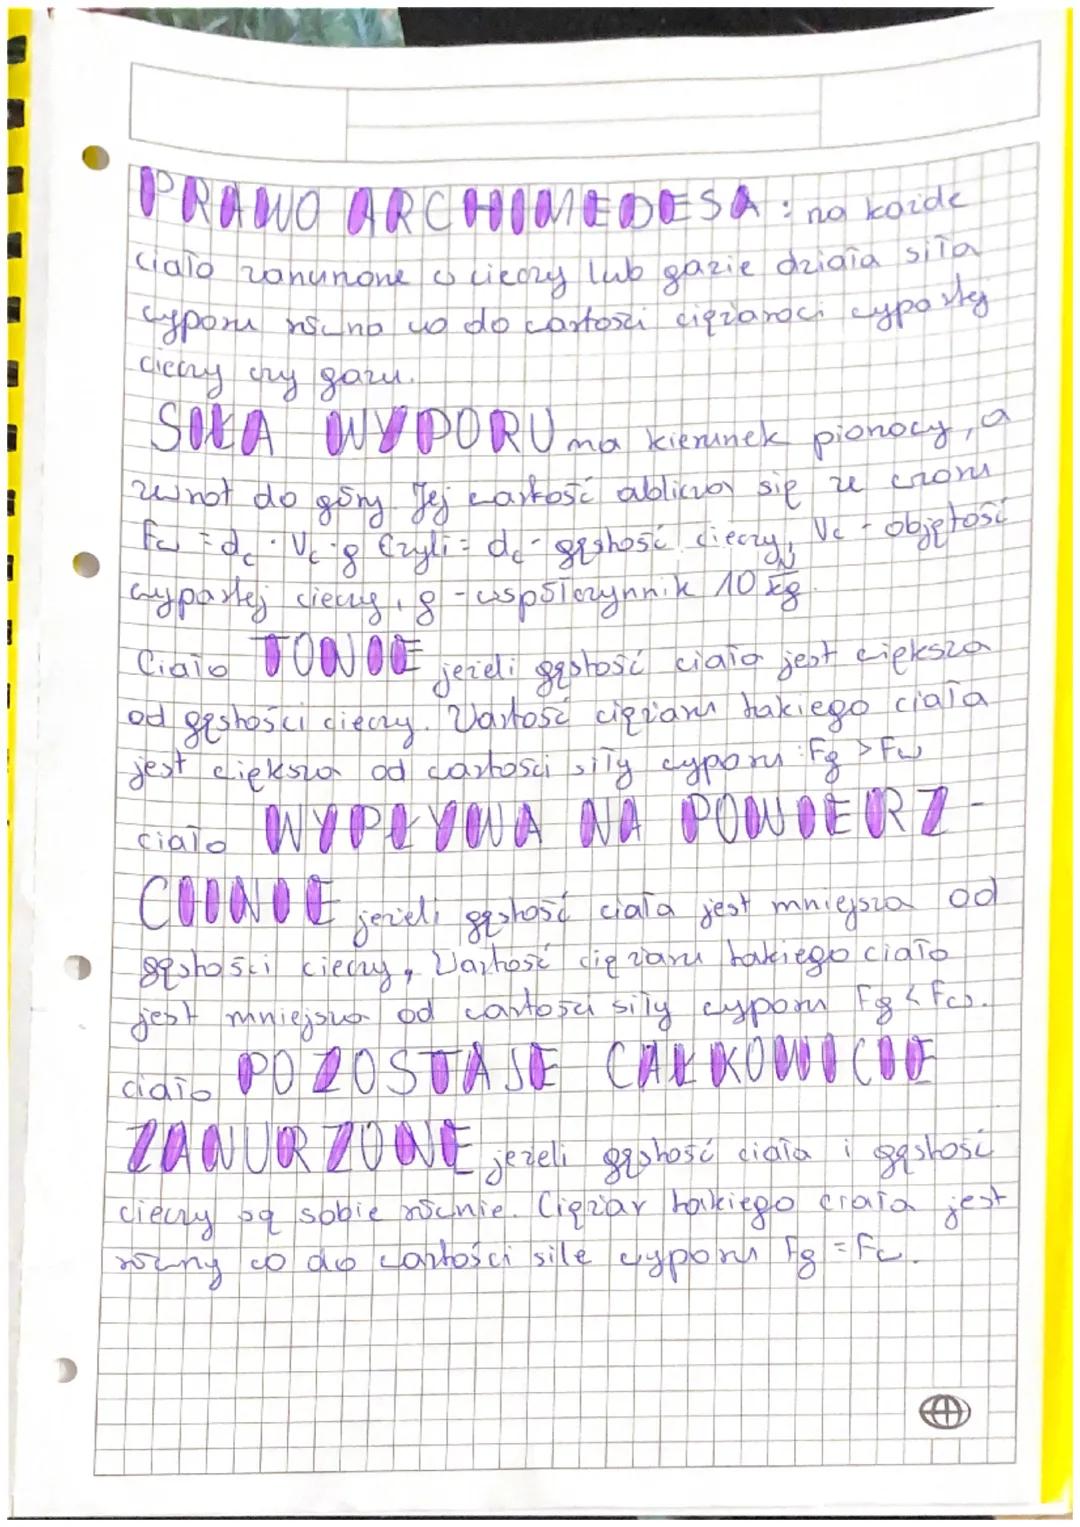 PRAWO ARCHIMEDESA: na każde
ciało zanurzone w cieczy lub gazie działa siła
wyporu równa co do wartości ciężarowi wypartej
cieczy czy gazu.
SIŁA WYPORU ma kierunek pionowy, a
zwrot do góry. Jej wartość oblicza się ze wzoru
Fw = dc · Vc · g Czyli = dc - gęstość cieczy, Vc - objętość
wypartej cieczy, g - współczynnik 10 N/kg.
Ciało TONIE jeżeli gęstość ciała jest większa
od gęstości cieczy. Wartość ciężaru takiego ciała
jest większa od wartości siły wyporu: Fg > Fw
ciało WYPŁYWA NA POWIERZ-
CHNIE jeżeli gęstość ciała jest mniejsza od
gęstości cieczy, Wartość ciężaru takiego ciało
jest mniejsza od wartości siły wyporu Fg < Fw.
ciało POZOSTAJE CAŁKOWICIE
ZANURZONE jeżeli gęstość ciała i gęstość
cieczy są sobie równie. Ciężar takiego ciała jest
równy co do wartości sile wyporu Fg = Fw.